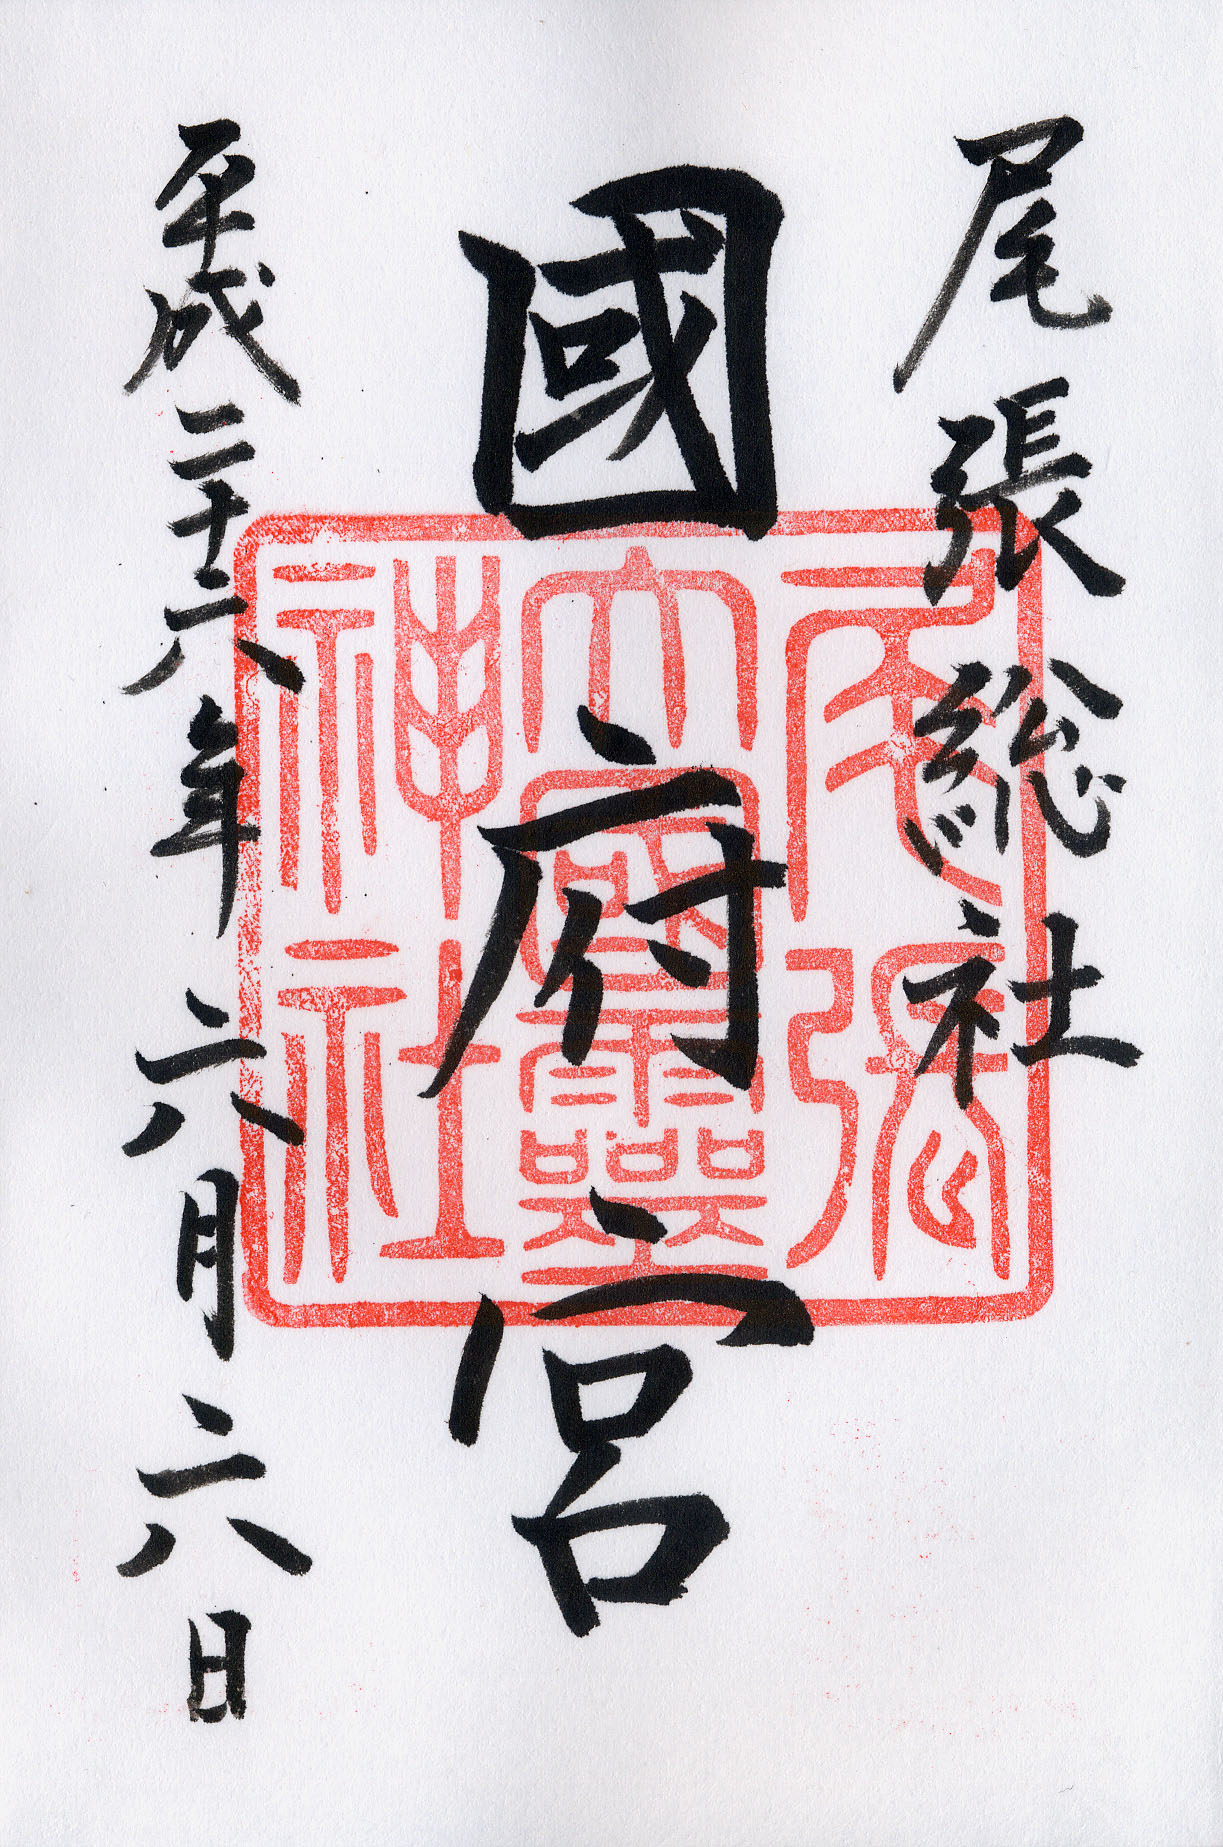 尾張総社
國府宮
平成二十六年六月六日
尾張
大國靈
神社